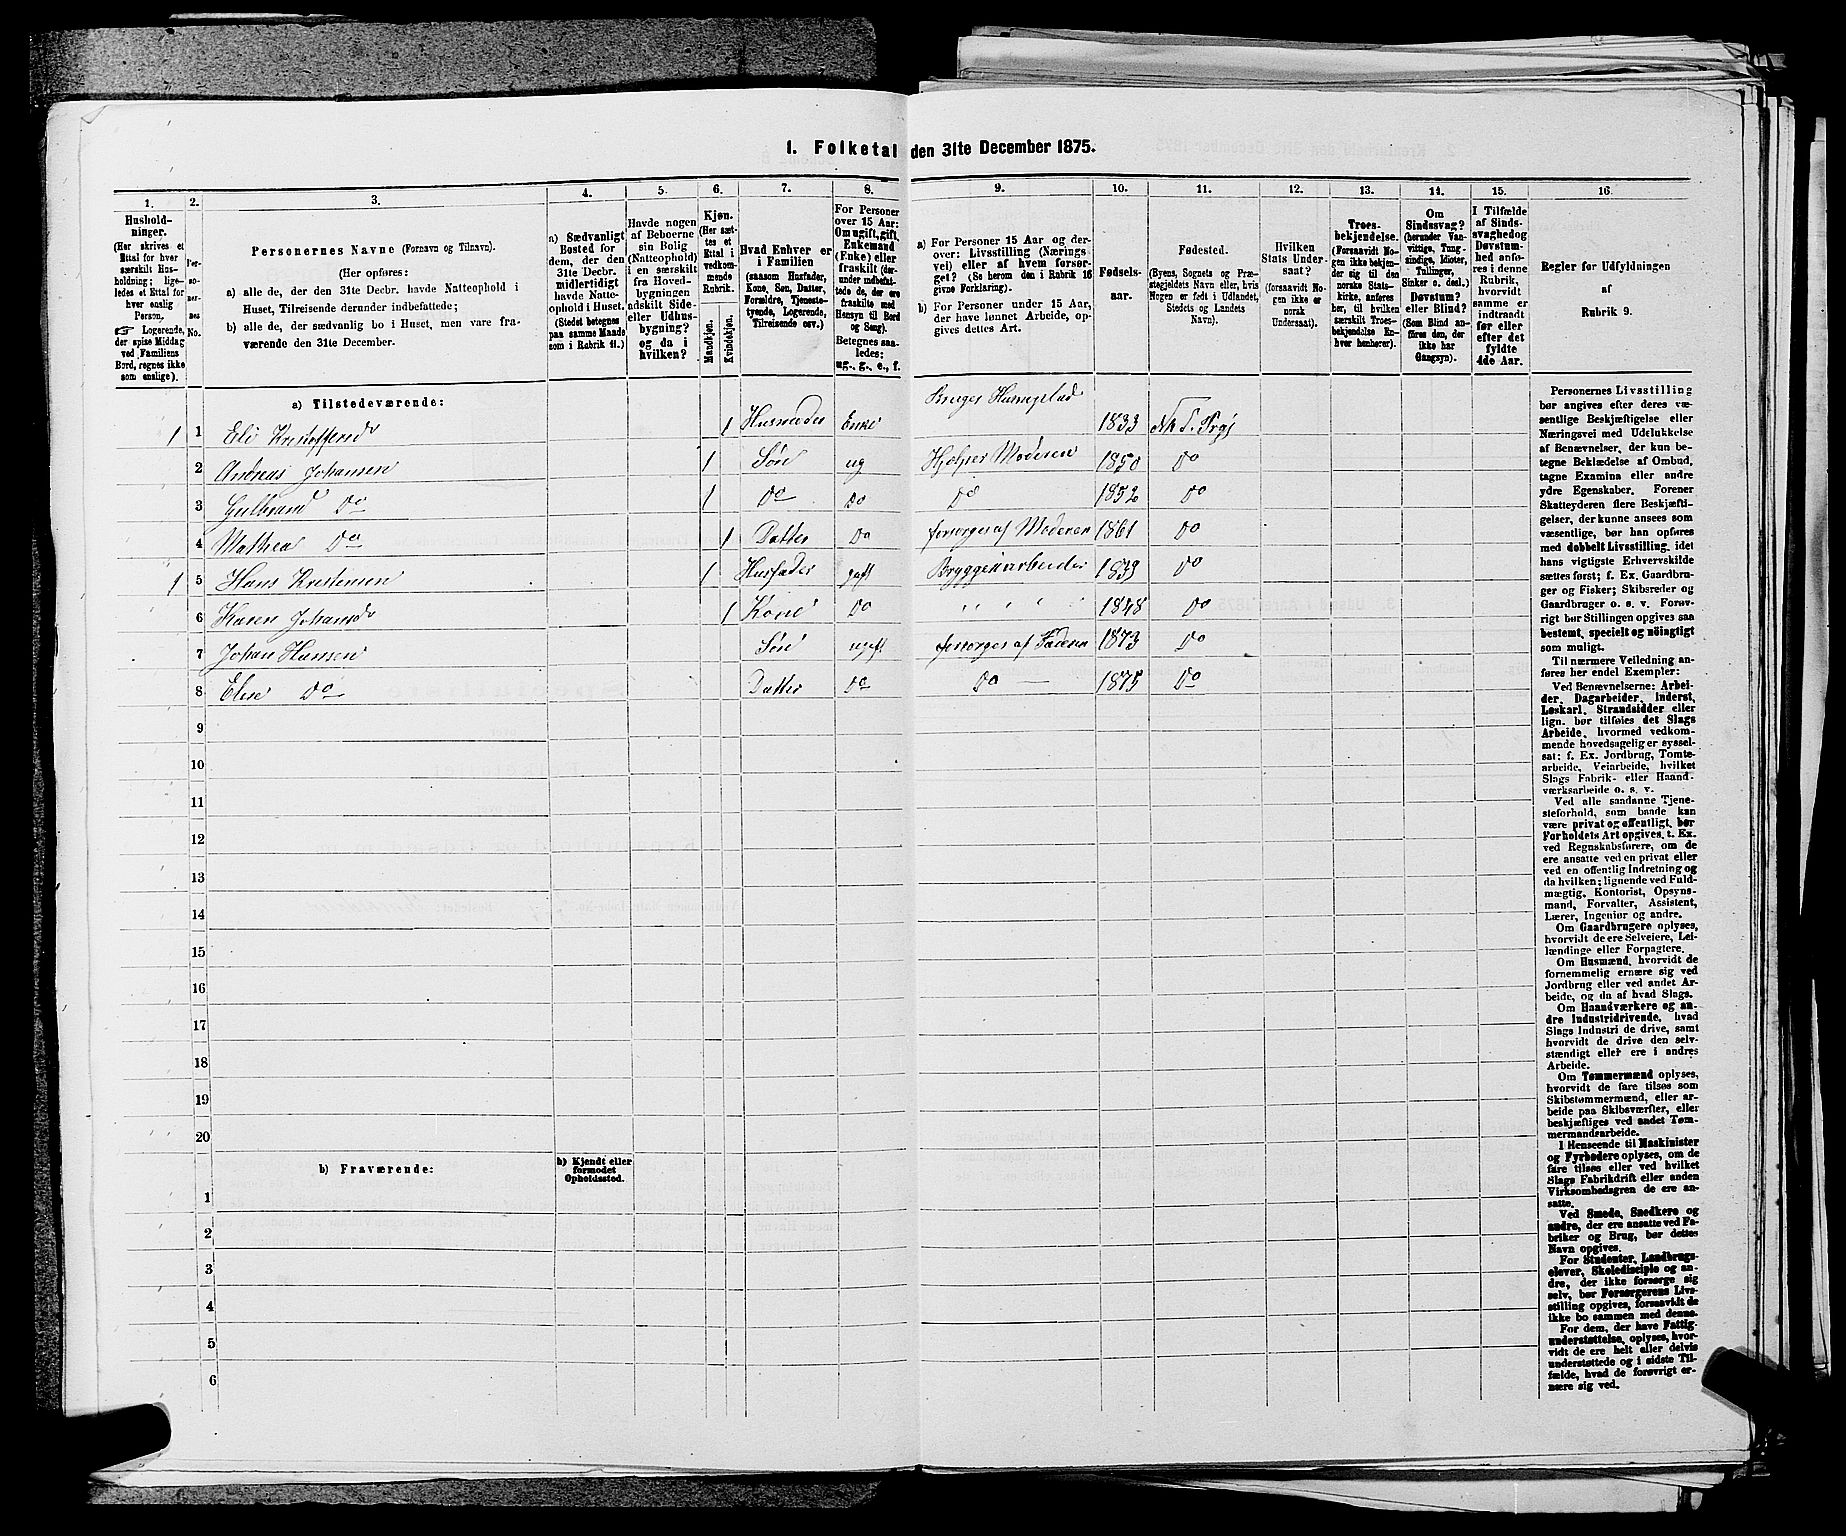 1. Folketal den 31te December 1875.
1.
2.
3.
4.
5.
6.
7.
8.
9.
10.
11.
12.
13.
14.
15.
16.
Hushold-
ninger.
(Her skrives et
Ettal for hver
særskilt Hus-
holdning; lige-
ledes et Ettal for
hver enslig
Person.
☞ Logerende,
der spise Middag
ved Familiens
Bord, regnes ikke
som enslige).
Per-
so-
ner-
nes
No.
Personernes Navne (Fornavn og Tilnavn).
(Her opføres:
a) alle de, der den 31te Decbr. havde Natteophold i
Huset, Tilreisende derunder indbefattede;
b) alle de, der sædvanlig bo i Huset, men vare fra-
værende den 31te December.
a) Sædvanligt
Bosted for
dem, der den
31te Decbr.
midlertidigt
havde Natte-
ophold i Huset.
(Stedet betegnes
paa samme Maade
som i Rubrik 11.)
Havde nogen
af Beboerne
sin Bolig
(Natteophold)
i en særskilt
fra Hoved-
bygningen
adskilt Side-
eller Udhus-
bygning? og da i
hvilken?
Kjøn.
(Her sæt-
tes et
Ettal i
vedkom-
mende
Rubrik.
Mandkjøn.
Kvindekjøn.
Hvad Enhver er
i Familien
(saasom Husfader,
Kone, Søn, Datter,
Forældre, Tjeneste-
tyende, Logerende,
Tilreisende osv.)
For Personer
over 15 Aar:
Om ugift, gift,
Enkemand
(Enke) eller
fraskilt (der-
under indbefat-
tede de, der ere
fraskilte med
Hensyn til Bord
og Seng).
Betegnes saa-
ledes:
ug., g., e., f.
a) For Personer 15 Aar og der-
over: Livsstilling (Nærings-
vei) eller af hvem forsør-
get? (Se herom den i Rubrik 16
givne Forklaring).
b) For Personer under 15 Aar,
der have lønnet Arbeide, op-
gives dettes Art.
Fødsels-
aar.
Fødested.
(Byens, Sognets og Præ-
stegjeldets Navn eller, hvis
Nogen er født i Udlandet,
Stedets og Landets
Navn).
Hvilken
Stats Under-
saat?
(forsaavidt No-
gen ikke er
norsk
Undersaat).
Troes-
bekjendelse.
(Forsaavidt No-
gen ikke bekjen-
der sig til den
norske Stats-
kirke, anføres
her, til hvilken
særskilt Troes-
bekjendelse En-
hver henhører).
Om
Sindssvag?
(herunder Van-
vittige, Tung-
sindige, Idioter,
Tullinger,
Sinker o. desl.)
Døvstum?
eller Blind?
(Som Blind an-
føres den, der
ikke har
Gangsyn).
I Tilfælde
af Sinds-
svaghed og
Døvstum-
hed anfø-
res i denne
Rubrik,
hvorvidt
samme er
indtraadt
før eller
efter det
fyldte
4de Aar.
Regler for Udfyldningen
af
Rubrik 9.
a) Tilstedeværende:
1 1 Eli Kristoffersd 1 Husmoder Enke Bruger Husmplad 1833
2 Andreas Johansen 1 Søn ug Hjelper Moderen 1850 Do
3 Gulbrand Do 1 Do Do Do 1852 Do
4 Mathea Do 1 Datter Do forsørges af Moderen 1861 Do
1 5 Hans Kristensen 1 Husfader gift Bryggeriarbeider 1839 Do
6 Karen Johansd 1 Kone Do " " " " 1848 Do
7 Johan Hansen Søn ugift forsørges af Faderen 1873 Do
8 Elise Do Datter Do Do 1875 Do
9
10
11
12
13
14
15
16
17
18
19
20
b) Fraværende:
b) Kjendt eller
formodet
Opholdssted.
1
2
3
4
5
6
Personernes Livsstilling
bør angives efter deres væ-
sentlige Beskjæftigelse eller
Næringsvei med Udelukkelse
af Benævnelser, der kun be-
tegne Beklædelse af Ombud,
tagne Examina eller andre
ydre Egenskaber. Forener
Skatteyderen flere Beskjæfti-
gelser, der kunne ansees som
væsentlige, bør han opføres
med dobbelt Livsstilling, idet
hans vigtigste Erhvervskilde
sættes først; f. Ex. Gaardbru-
ger og Fisker; Skibsreder og
Gaardbruger o. s. v. Forøv-
rigt bør Stillingen opgives saa
bestemt, specielt og nøiagtigt
som muligt.
Til nærmere Veiledning an-
føres her endel Exempler:
Ved Benævnelserne: Arbei-
der, Dagarbeider, Inderst,
Løskarl, Strandsidder eller
lign. bør tilføies det Slags
Arbeide, hvormed vedkom-
mende hovedsagelig er syssel-
sat; f. Ex. Jordbrug, Tomte-
arbeide, Veiarbeide, hvilket
Slags Fabrik- eller Haand-
værksarbeide o. s. v.
Ved alle saadanne Tjene-
steforhold, som baade kan
være privat og offentligt, bør
Forholdets Art opgives, t. Ex.
ved Regnskabsførere, om de
ere ansatte ved en privat eller
ved en offentlig Indretning og
da hvilken; lignende ved Fuld-
mægtig, Kontorist, Opsyns-
mand, Forvalter, Assistent,
Lærer, Ingeniør og andre.
Om Gaardbrugere oplyses,
hvorvidt de ere Selveiere, Lei-
lændinge eller Forpagtere.
Om Husmænd, hvorvidt de
fornemmelig ernære sig ved
Jordbrug eller ved andet Ar-
beide, og da af hvad Slags.
Om Haandværkere og an-
dre Industridrivende, hvad
Slags Industri de drive, samt
hvorvidt de drive den selv-
stændigt eller ere i andres
Arbeide.
Om Tømmermænd oplyses,
hvorvidt de fare tilsøs som
Skibstømmermænd, eller ar-
beide paa Skibsværfter, eller
beskjæftiges ved andet Tøm-
mermandsarbeide.
I Henseende til Maskinister
og Fyrbødere oplyses, om de
fare tilsøs eller ved hvilket
Slags Fabrikdrift eller anden
Virksomhedsgren de ere an-
satte.
Ved Smede, Snedkere og
andre, der ere ansatte ved Fa-
briker og Brug, bør dettes
Navn opgives.
For Studenter, Landbrugs-
elever, Skoledisciple og an-
dre, der ikke forsørge sig
selv, bør Forsørgerens Livs-
stilling opgives, forsaavidt de
ikke bo sammen med denne.
For dem, der have Fattig-
understøttelse, oplyses, hvor-
vidt de ere helt eller delvis
understøttede og i sidste Til-
fælde, hvad de forøvrigt er-
nære sig ved.